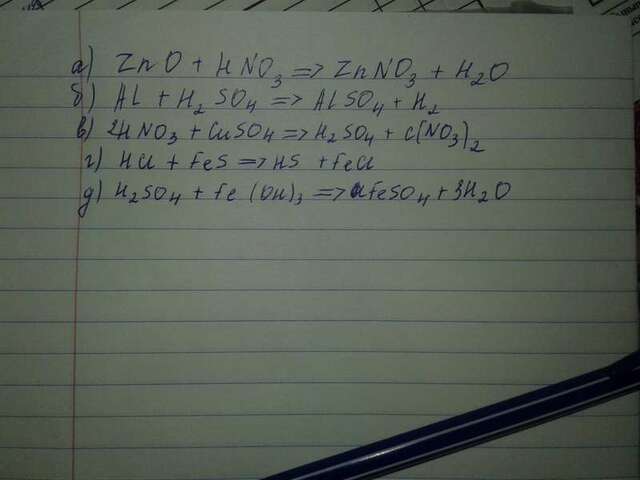 а) ZnO + HNO3 => ZnNO3 + H2O
б) Al + H2SO4 => AlSO4 + H2
в) 2HNO3 + CuSO4 => H2SO4 + C(NO3)2
г) HCl + FeS => HS + FeCl
д) H2SO4 + Fe(OH)3 => FeSO4 + 3H2O